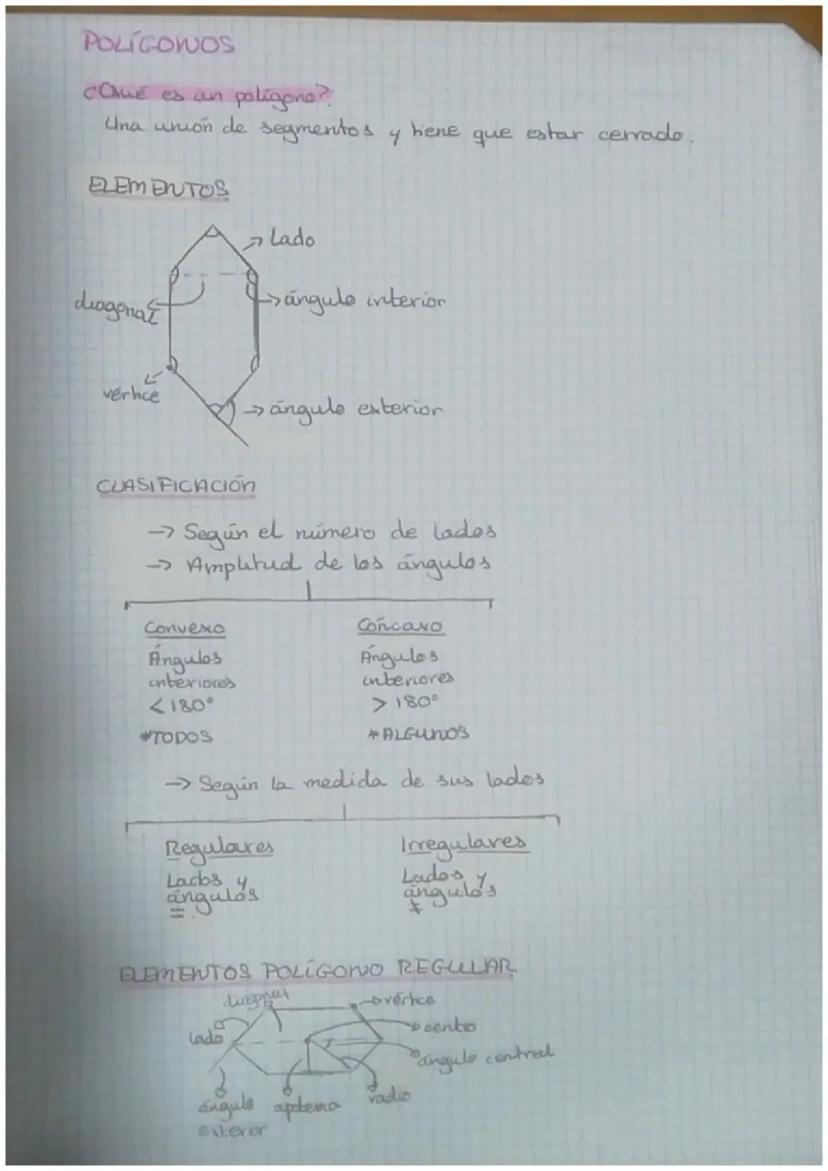 POLÍGONOS
¿Qué es un polígono?
Una unión de segmentos y tiene que estar cerrado.
ELEMENTOS
→ Lado
diagonal
→ ángulo interior
vértice
→ ángulo exterior
CLASIFICACIÓN
→ Según el número de lados
→ Amplitud de los ángulos
Convexo
Ángulos
interiores
<180°
*TODOS
Cóncavo
Ángulos
interiores
> 180°
*ALGUNOS
→ Según la medida de sus lados
Regulares
Lados y
ángulos
=
Irregulares
Lados y
ángulos
≠
ELEMENTOS POLÍGONO REGULAR
diagonal
vértice
lado
centro
ángulo central
ángulo
exterior
apotema
radio